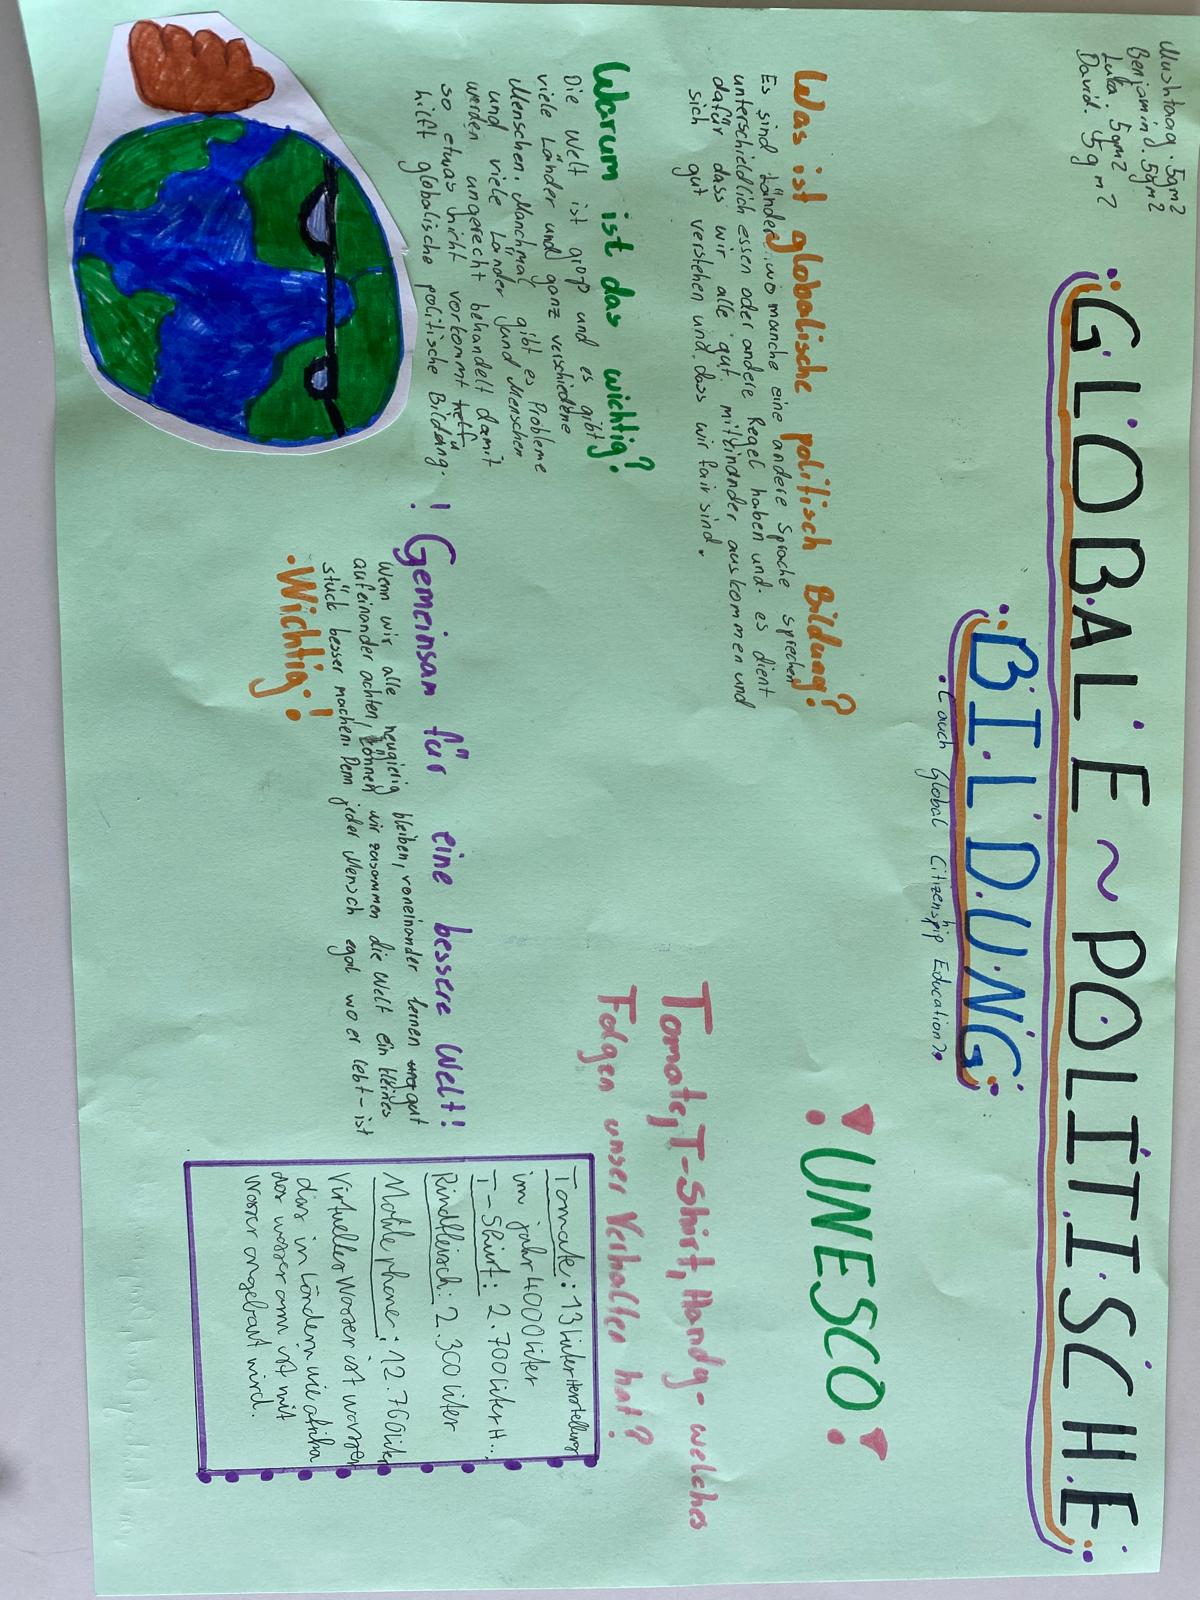 Mushtaag. 5gm2
Benjamin. 5gm2
Luka. 5gm2
David. 5gm2
GLOBALE ~ POLITISCHE
BILDUNG
(auch Global Citizenship Education?)
Was ist globalische politisch Bildung?
Es sind Länder wo manche eine andere Sprache sprechen
unterschiedlich essen oder andere Regel haben und es dient
dafür dass wir alle gut mitindnder auskommen und
sich gut verstehen und dass wir fair sind.
Warum ist das wichtig?
Die Welt ist groß und es gibt
viele Länder und ganz verschiedene
Menschen. Manchmal gibt es Probleme
und viele Länder und Menschen
werden ungerecht behandelt damit
so etwas nicht vorkommt
hilft globalische politische Bildung.
! UNESCO !
Tomate, T-Shirt, Handy - welches
Folgen unser Verhalten hat?
! Gemeinsam für eine bessere Welt!
Wenn wir alle neugierig bleiben, voneinander lernen gut
aufeinander achten, können wir zusammen die Welt ein kleines
stück besser machen. Denn jeder Mensch egal wo er lebt - ist
Wichtig!
Tomate: 13 Liter Herstellung
im jahr 4000 liter
T-Shirt: 2.700 liter H..
Rindfleisch: 2.300 liter
Mobile phone: 12.760 liter
Virtueller Wasser ist wasser
das in Ländern wie afrika
das wasser arm ist mit
wasser angebaut wird.